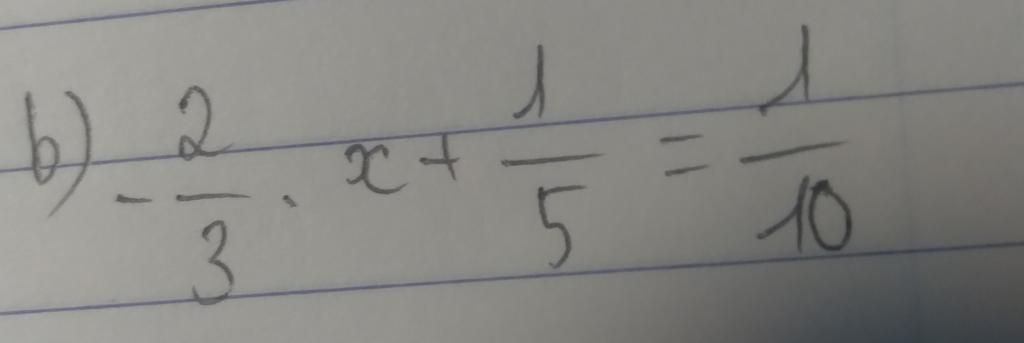 b) -2/3 . x + 1/5 = 1/10